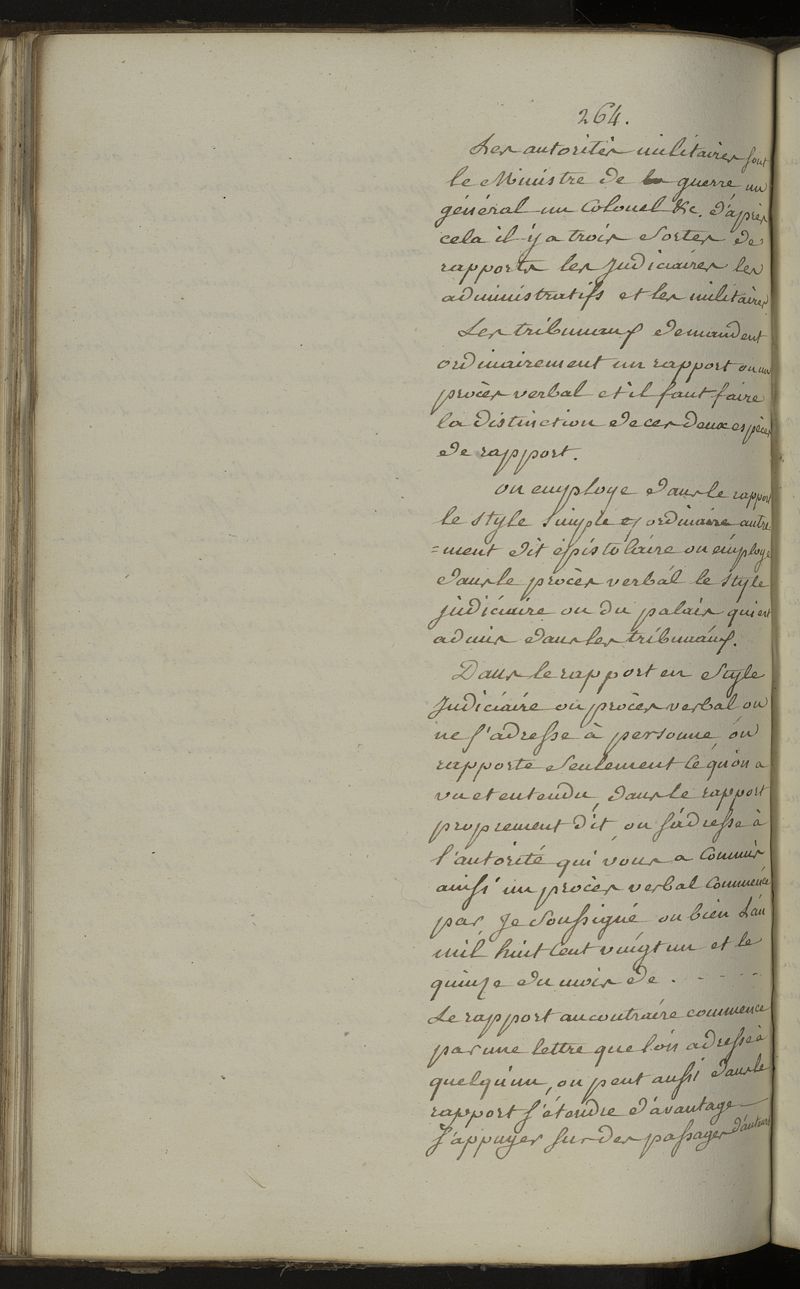 264.
Les autorités militaires sont
le Ministre de la guerre un
général un Colonel &c. d'après
cela il y a trois Sortes de
rapports les Judiciaires les
administratifs et les militaires
Les tribunaux demandent
ordinairement un rapport ou un
procès verbal et il faut faire
la distinction de ces deux espèces
de rapport.
on employe dans le rapport
le style simple et ordinaire autre
=ment dit épistolaire on employe
dans le procès verbal le style
judiciaire ou du palais qui est
admis dans les tribunaux.
Dans le rapport en Style
Judiciaire ou procès verbal on
ne s'adresse à personne, on
rapporte Seulement ce qu'on a
vu et entendu, dans le rapport
proprement dit, on s'adresse à
l'autorité qui vous a commis
ainsi un procès verbal commence
par Je Soussigné ou bien L'an
mil huit Cent vingt un et le
quinze du mois de . - - - -
Le rapport au contraire commence
par une lettre que l'on adresse à
quelqu'un, on peut aussi dans le
rapport s'étendre d'avantage
S'appuyer sur des passages d'auteurs